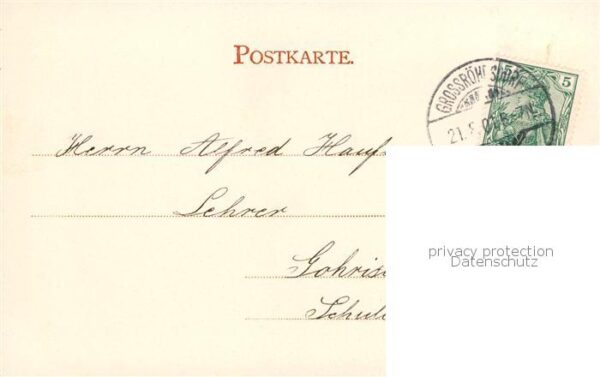 POSTKARTE.
5 5
GROSSRÖHRSDORF
21.
Herrn Alfred Hauf
Lehrer
Gohrisc
Schul
privacy protection
Datenschutz